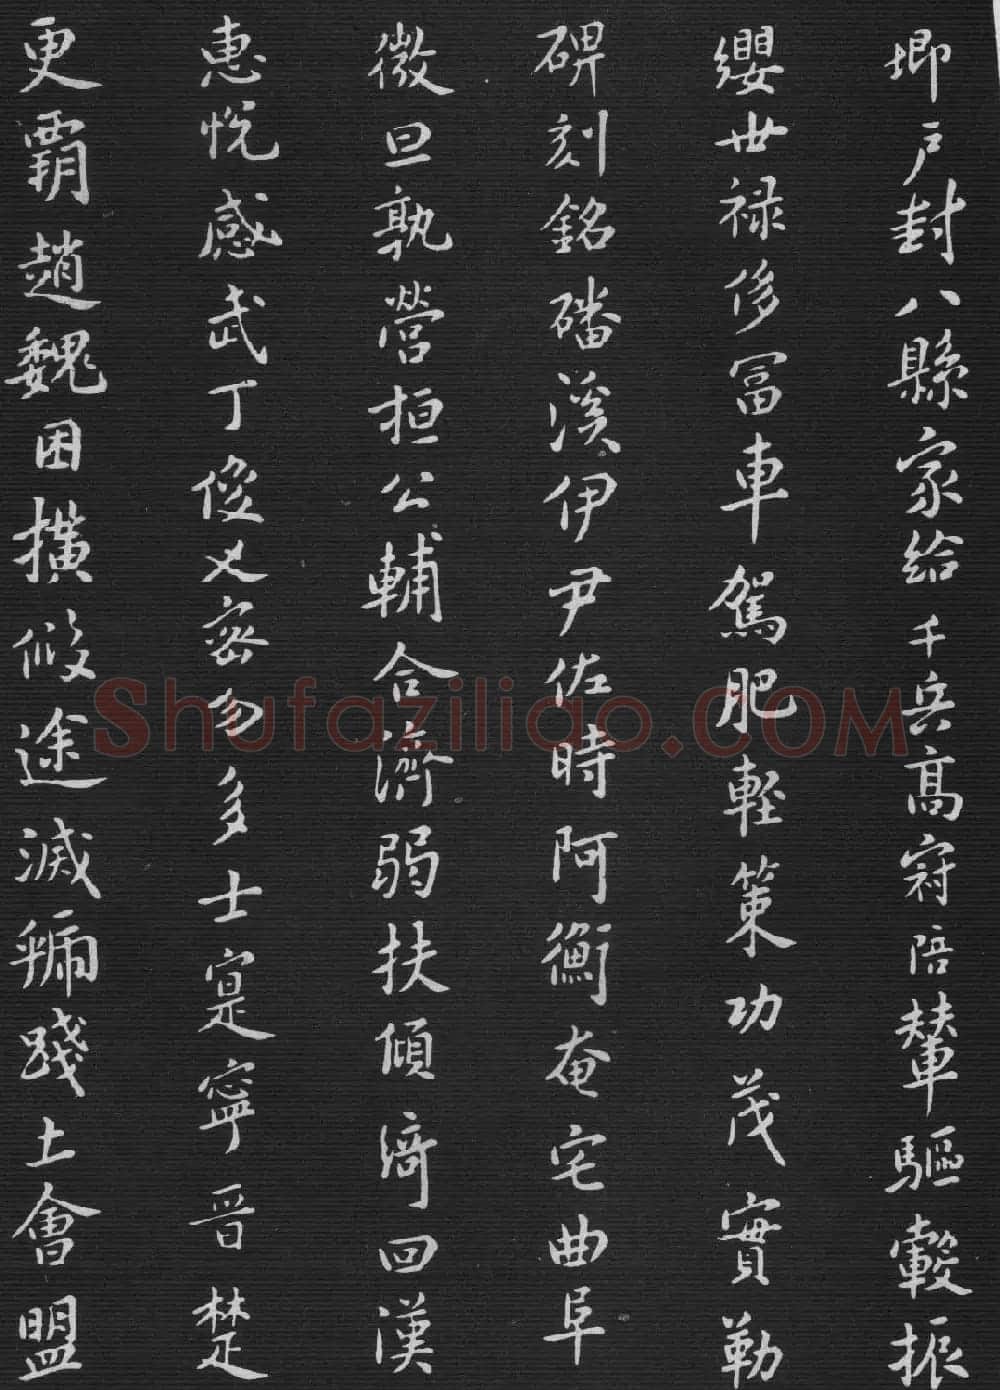 卿户封八縣家給千兵高冠陪輦驅轂振
纓世禄侈冨車駕肥輕策功茂實勒
碑刻銘磻溪伊尹佐時阿衡奄宅曲阜
微旦孰營桓公輔合濟弱扶傾綺回漢
惠悅感武丁俊乂密勿多士寔寧晉楚
更霸趙魏困横假途滅虢踐土會盟
Shufaziliao.COM